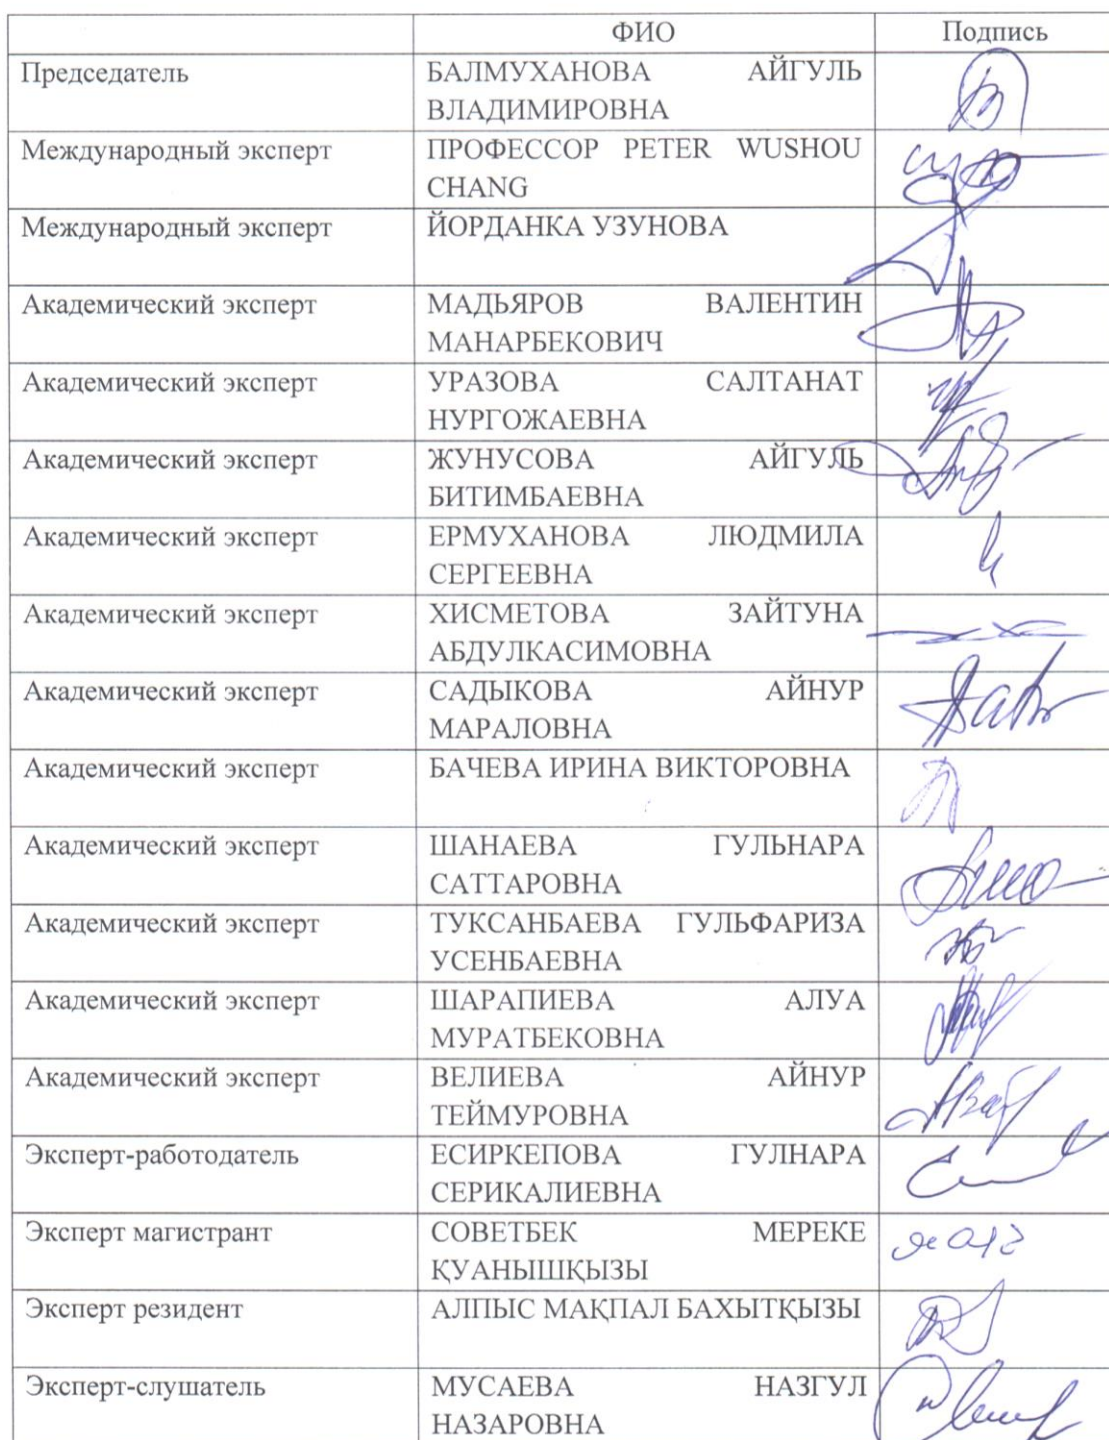 ФИО Подпись
Председатель БАЛМУХАНОВА АЙГУЛЬ
ВЛАДИМИРОВНА
Международный эксперт ПРОФЕССОР PETER WUSHOU
CHANG
Международный эксперт ЙОРДАНКА УЗУНОВА
Академический эксперт МАДЬЯРОВ ВАЛЕНТИН
МАНАРБЕКОВИЧ
Академический эксперт УРАЗОВА САЛТАНАТ
НУРГОЖАЕВНА
Академический эксперт ЖУНУСОВА АЙГУЛЬ
БИТИМБАЕВНА
Академический эксперт ЕРМУХАНОВА ЛЮДМИЛА
СЕРГЕЕВНА
Академический эксперт ХИСМЕТОВА ЗАЙТУНА
АБДУЛКАСИМОВНА
Академический эксперт САДЫКОВА АЙНУР
МАРАЛОВНА
Академический эксперт БАЧЕВА ИРИНА ВИКТОРОВНА
Академический эксперт ШАНАЕВА ГУЛЬНАРА
САТТАРОВНА
Академический эксперт ТУКСАНБАЕВА ГУЛЬФАРИЗА
УСЕНБАЕВНА
Академический эксперт ШАРАПИЕВА АЛУА
МУРАТБЕКОВНА
Академический эксперт ВЕЛИЕВА АЙНУР
ТЕЙМУРОВНА
Эксперт-работодатель ЕСИРКЕПОВА ГУЛНАРА
СЕРИКАЛИЕВНА
Эксперт магистрант СОВЕТБЕК МЕРЕКЕ
ҚУАНЫШҚЫЗЫ
Эксперт резидент АЛПЫС МАҚПАЛ БАХЫТҚЫЗЫ
Эксперт-слушатель МУСАЕВА НАЗГУЛ
НАЗАРОВНА